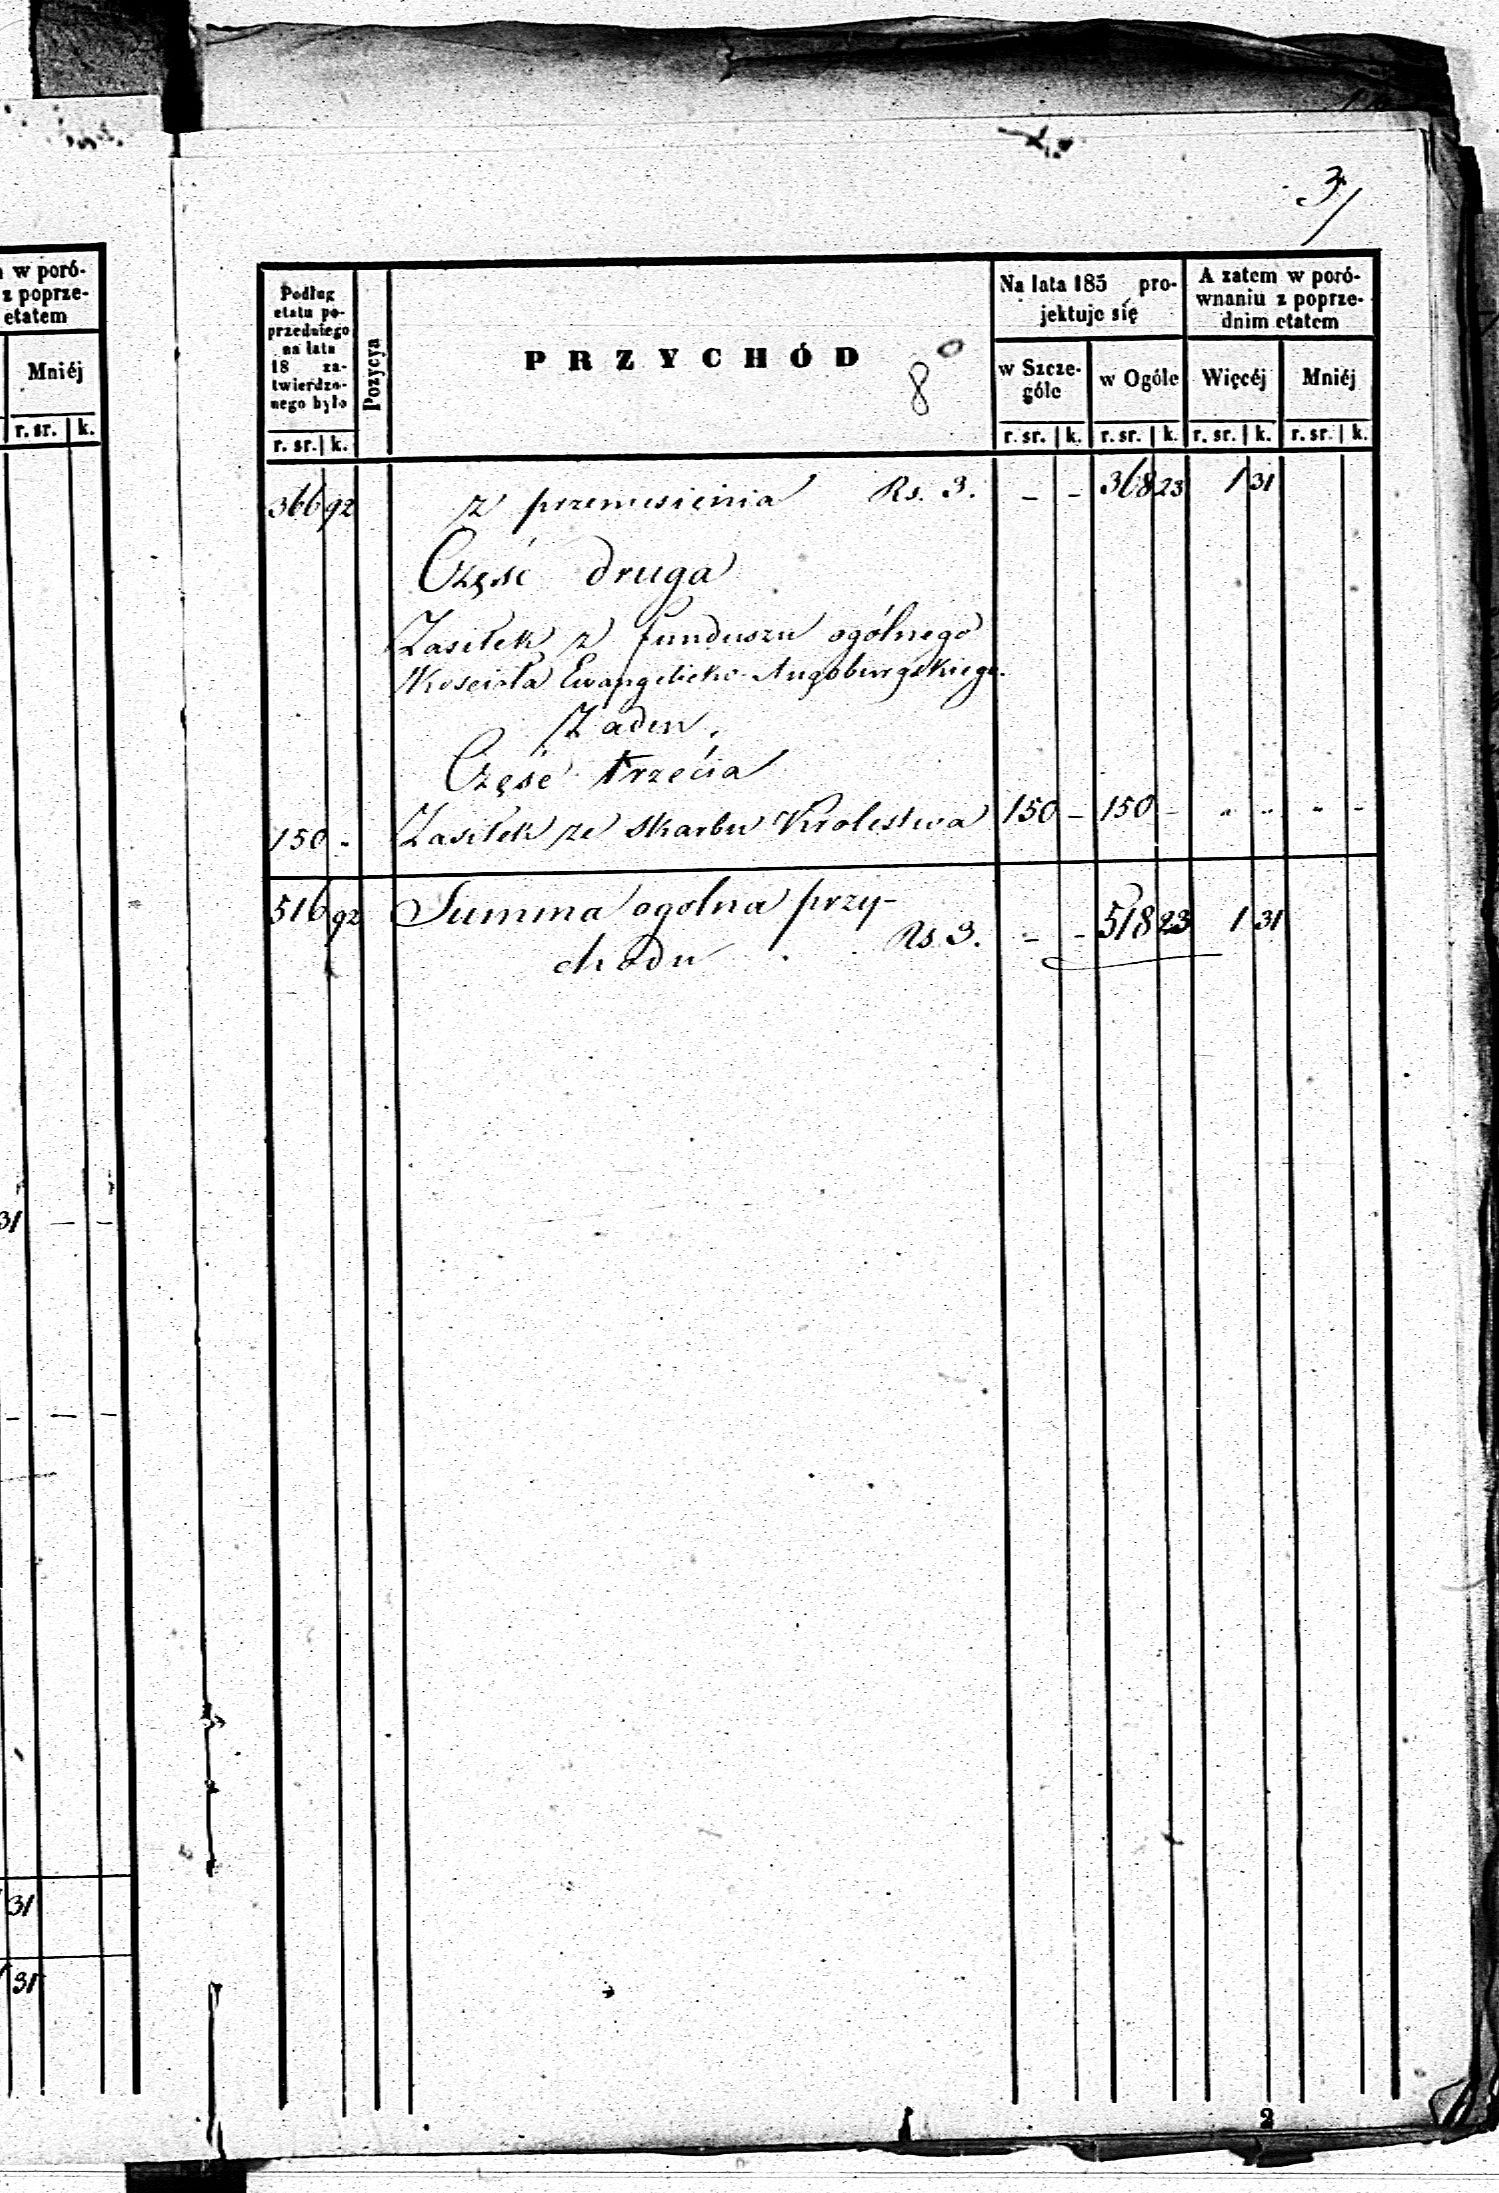 w poró-
z poprze-
etatem
Mniéj
r. sr. k.
31 — —
— — —
31
31
3/
Podług
etatu po-
przedniego
na lata
18 za-
twierdzo-
nego było
r. sr. k.
Pozycya
PRZYCHÓD
8
Na lata 185 pro-
jektuje się
w Szcze-
góle
w Ogóle
r. sr. k. r. sr. k.
A zatem w poró-
wnaniu z poprze-
dnim etatem
Więcéj Mniéj
r. sr. k. r. sr. k.
366 92 z przeniesienia Rs. 3. - - 368 23 1 31
Część druga
Zasiłek z funduszu ogólnego
Kościoła Ewangelicko-Augsburgskiego.
Żaden.
Część trzecia
150 - Zasiłek ze Skarbu Królestwa 150 - 150 - " " " -
516 92 Summa ogolna przy-
chodu Rs. 3. - - 518 23 1 31
2